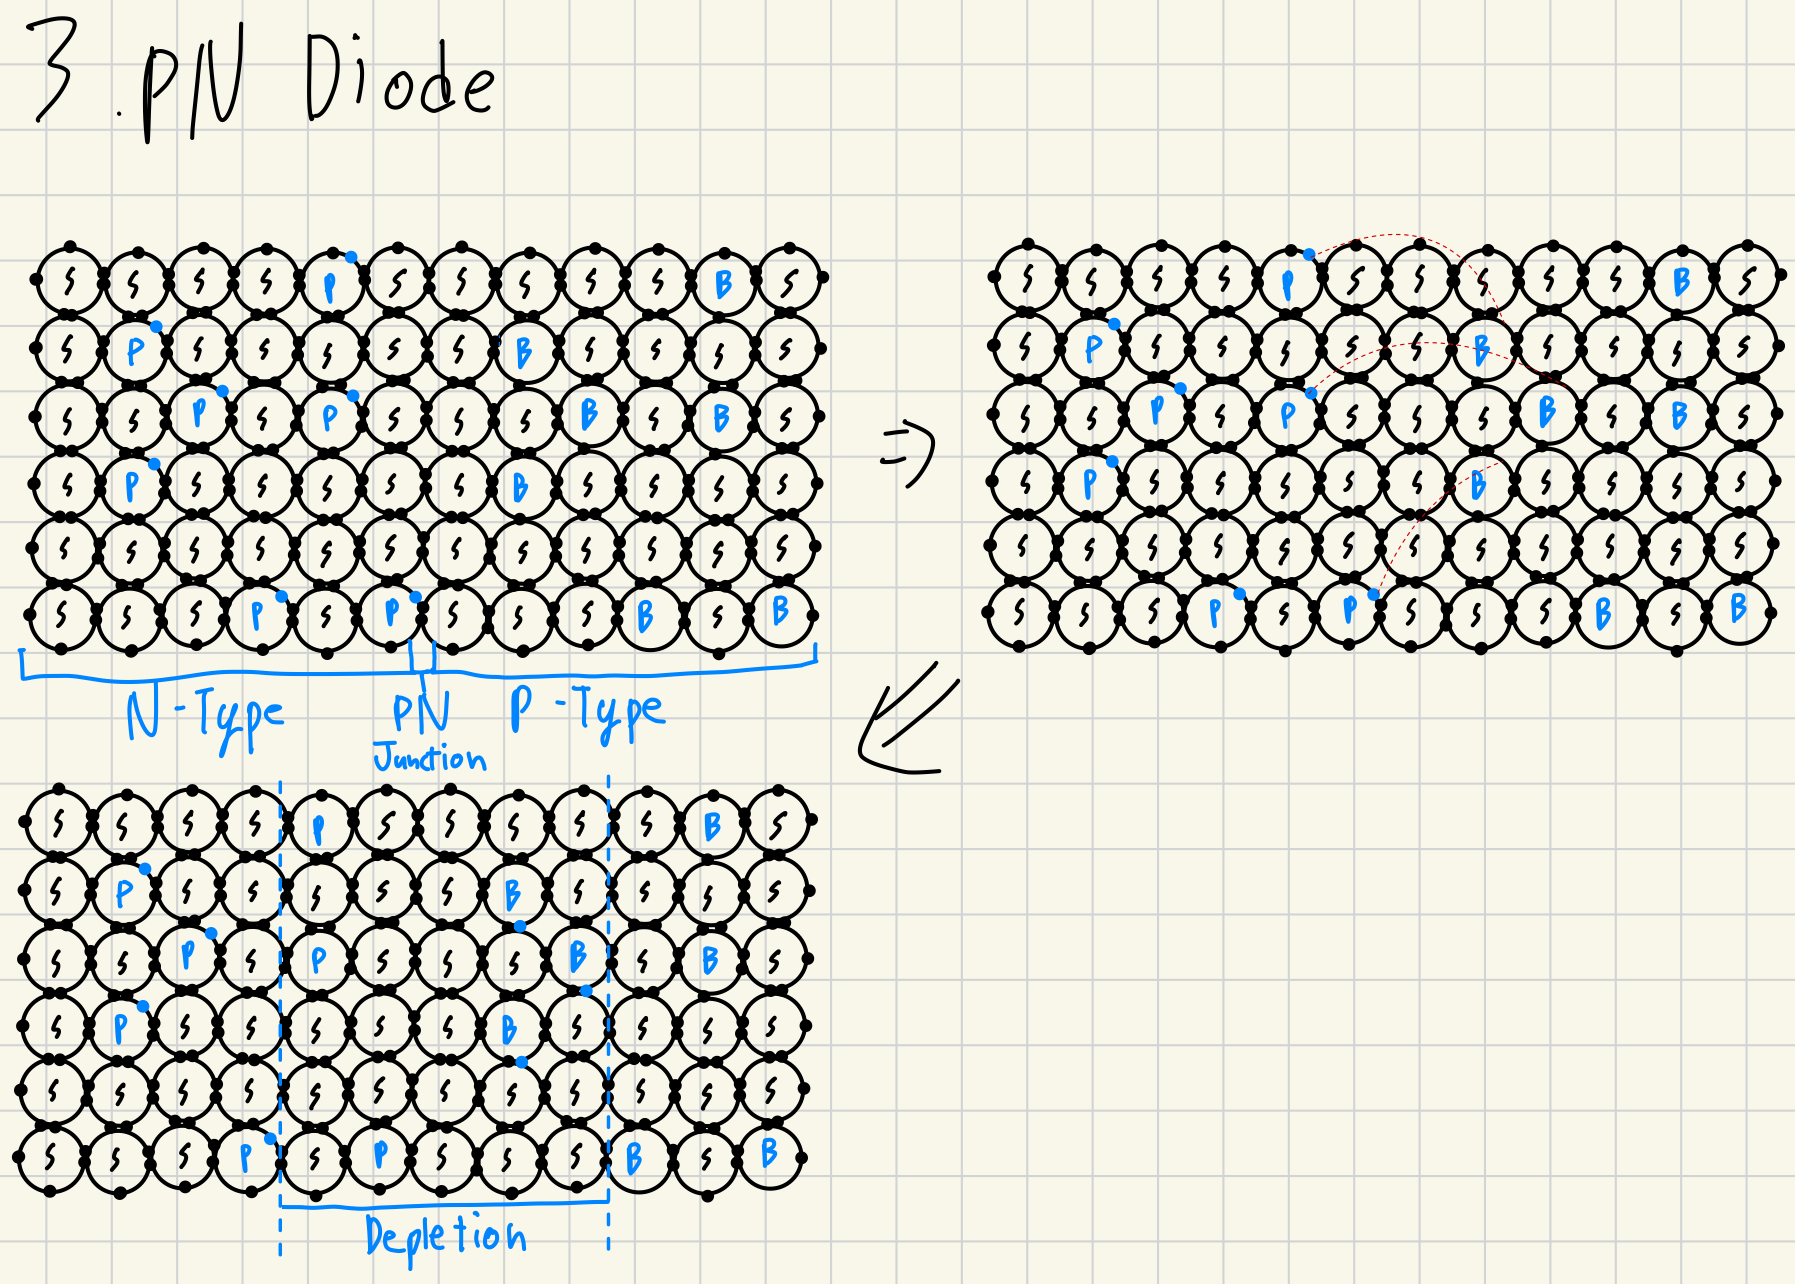 3. PN Diode
S S S S P S S S S S B S
S P S S S S S B S S S S
S S P S P S S S B S B S
S P S S S S S B S S S S
S S S S S S S S S S S S
S S S P S P S S S B S B
N-Type PN P-Type
Junction
S S S S P S S S S S B S
S P S S S S S B S S S S
S S P S P S S S B S B S
S P S S S S S B S S S S
S S S S S S S S S S S S
S S S P S P S S S B S B
S S S S P S S S S S B S
S P S S S S S B S S S S
S S P S P S S S B S B S
S P S S S S S B S S S S
S S S S S S S S S S S S
S S S P S P S S S B S B
Depletion